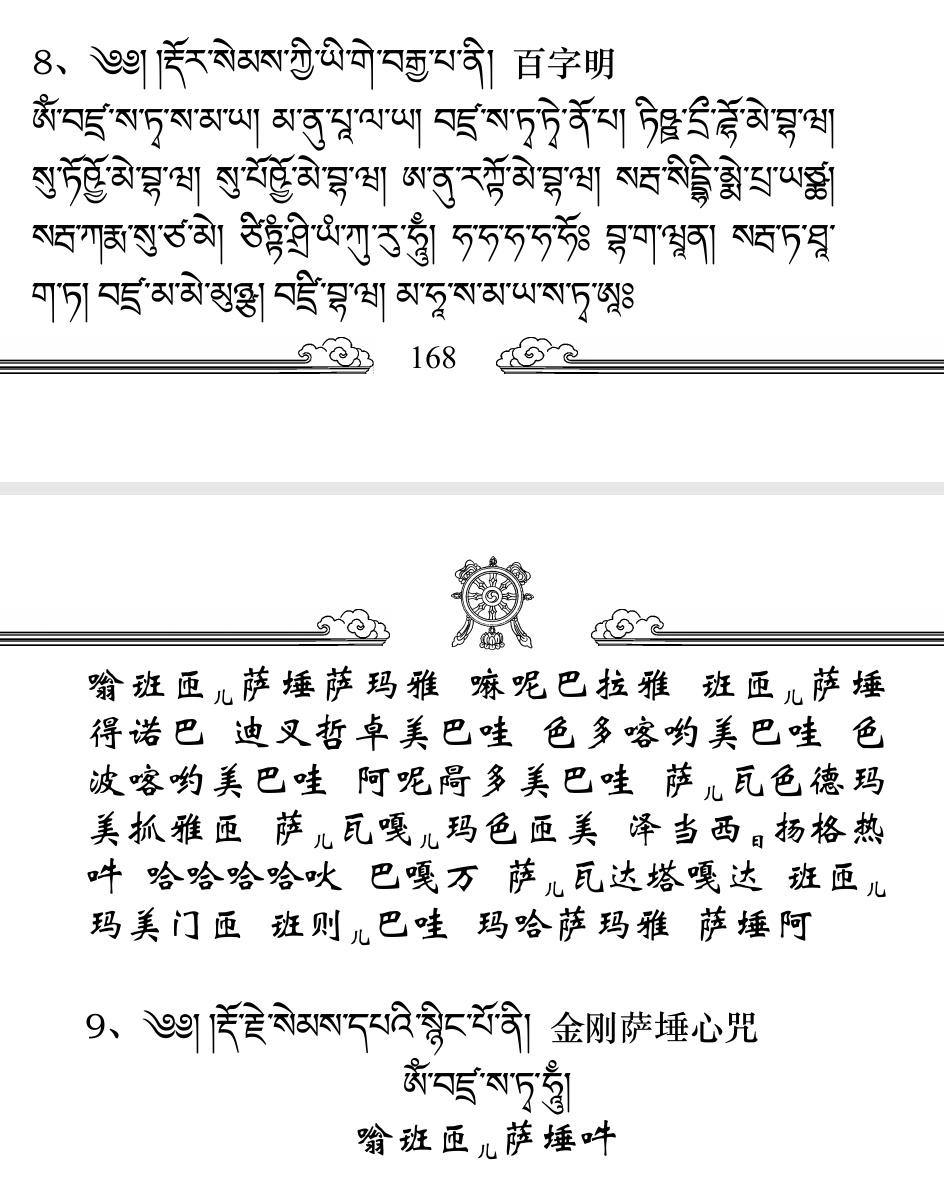 8、༄༅། །རྡོར་སེམས་ཀྱི་ཡི་གེ་བརྒྱ་པ་ནི། 百字明
ༀ་བཛྲ་ས་ཏྭ་ས་མ་ཡ། མ་ནུ་པཱ་ལ་ཡ། བཛྲ་ས་ཏྭ་ཏྭེ་ནོ་པ། ཏིཥྛ་དྲྀ་ཌྷོ་མེ་བྷ་ཝ།
སུ་ཏོཥྱོ་མེ་བྷ་ཝ། སུ་པོཥྱོ་མེ་བྷ་ཝ། ཨ་ནུ་རཀྟོ་མེ་བྷ་ཝ། སརྦ་སིདྡྷི་མྨེ་པྲ་ཡཙྪ།
སརྦ་ཀརྨ་སུ་ཙ་མེ། ཙིཏྟཾ་ཤྲི་ཡཾ་ཀུ་རུ་ཧཱུྃ། ཧ་ཧ་ཧ་ཧ་ཧོཿ བྷ་ག་ཝཱན། སརྦ་ཏ་ཐཱ་
ག་ཏ། བཛྲ་མ་མེ་མུཉྩ། བཛྲི་བྷ་ཝ། མ་ཧཱ་ས་མ་ཡ་ས་ཏྭ་ཨཱཿ
168
嗡班匝儿萨埵萨玛雅 嘛呢巴拉雅 班匝儿萨埵
得诺巴 迪叉哲卓美巴哇 色多喀哟美巴哇 色
波喀哟美巴哇 阿呢局多美巴哇 萨儿瓦色德玛
美抓雅匝 萨儿瓦嘎儿玛色匝美 泽当西日扬格热
吽 哈哈哈哈伙 巴嘎万 萨儿瓦达塔嘎达 班匝儿
玛美门匝 班则儿巴哇 玛哈萨玛雅 萨埵阿
9、༄༅། །རྡོ་རྗེ་སེམས་དཔའི་སྙིང་པོ་ནི། 金刚萨埵心咒
ༀ་བཛྲ་ས་ཏྭ་ཧཱུྃ།
嗡班匝儿萨埵吽